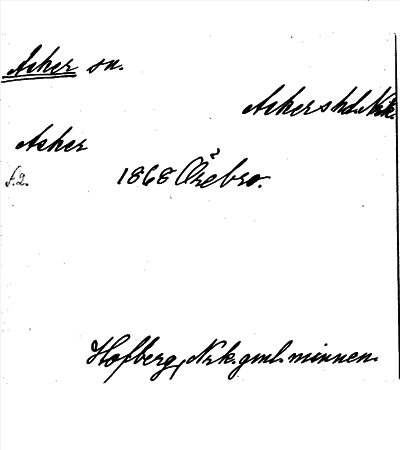 Asker sn.
Askers hd. Nrk.
Asker
s. 2.
1868 Örebro.
Hofberg, Nrk. gml. minnen.